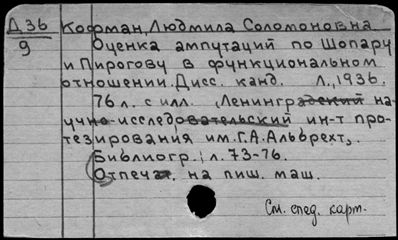 Д 36 Кофман, Людмила Соломоновна
9 Оценка ампутаций по Шопару
и Пирогову в функциональном
отношении. Дисс. канд. Л., 1936.
76 л. с илл. (Ленинградский на-
учно-исследовательский ин-т про-
тезирования им. Г.А. Альбрехт).
Библиогр.: л. 73-76.
Отпечат. на пиш. маш.
См. след. карт.